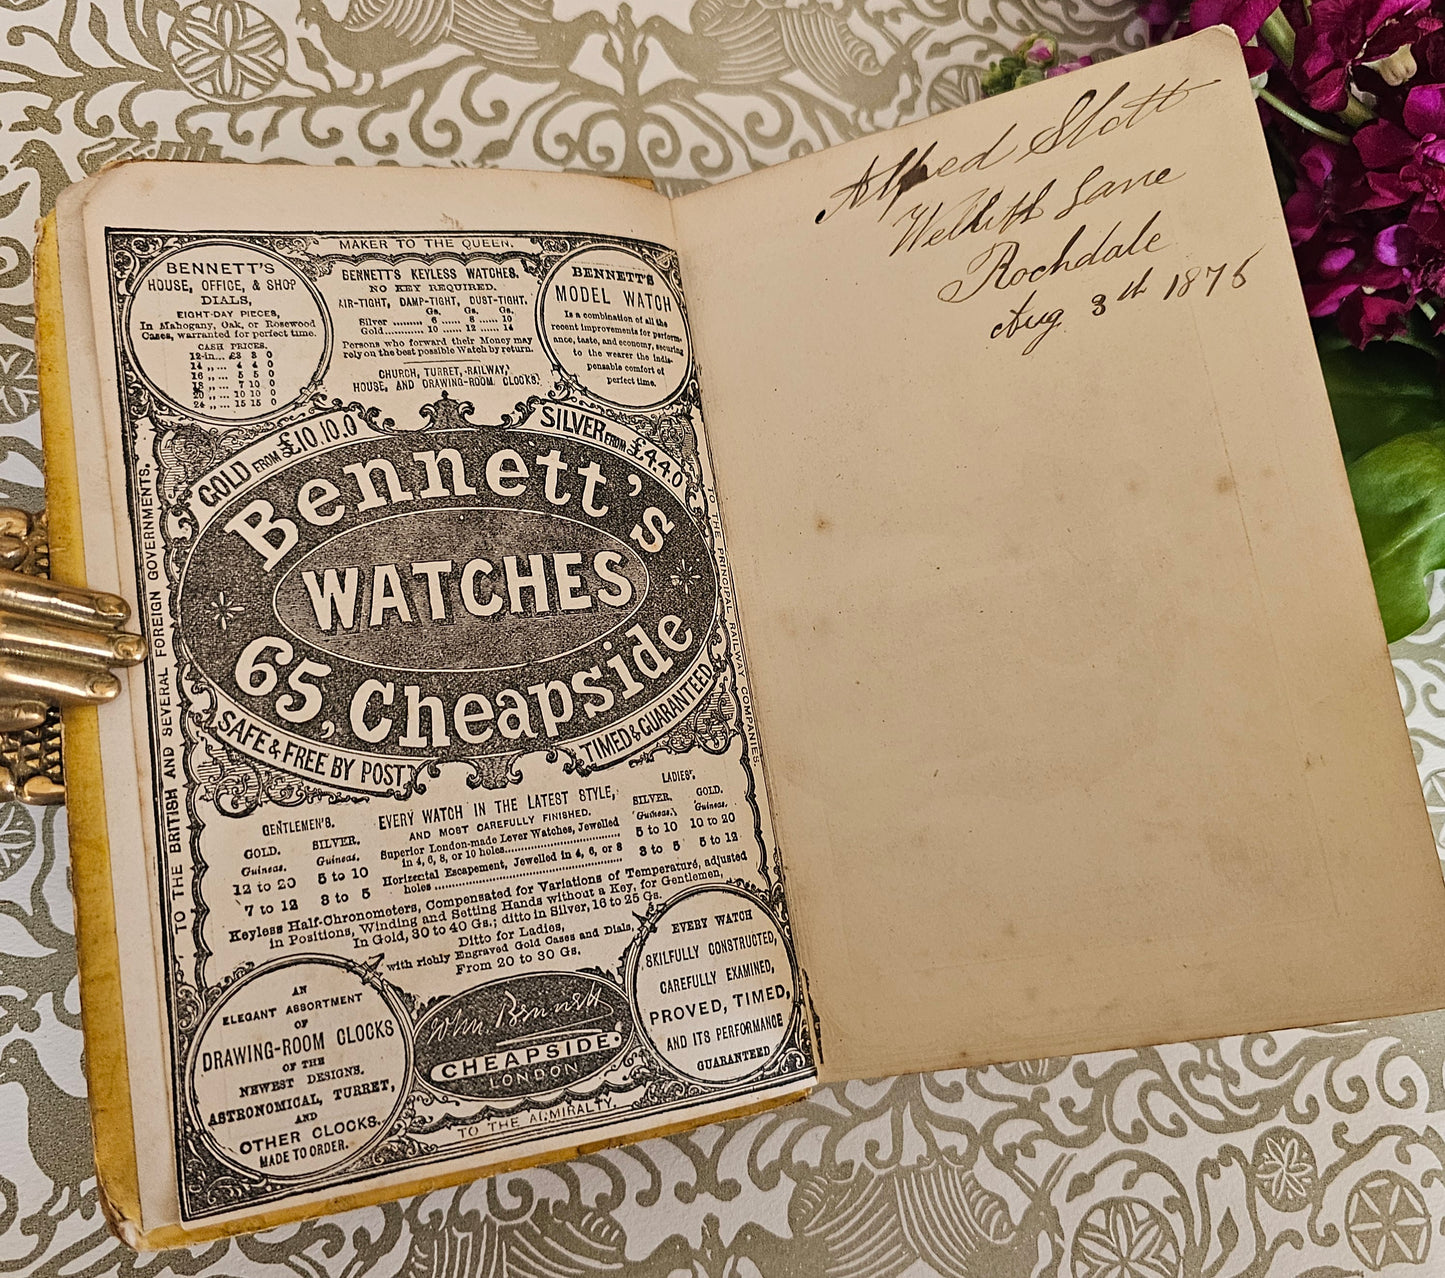 MAKER TO THE QUEEN.
BENNETT'S
HOUSE, OFFICE, & SHOP
DIALS,
EIGHT-DAY PIECES,
In Mahogany, Oak, or Rosewood
Cases, warranted for perfect time.
CASH PRICES.
12-in... £3 3 0
14 ,, ... 4 4 0
16 ,, ... 5 5 0
18 ,, ... 7 10 0
20 ,, ... 10 10 0
24 ,, ... 15 15 0
BENNETT'S KEYLESS WATCHES.
NO KEY REQUIRED.
AIR-TIGHT, DAMP-TIGHT, DUST-TIGHT.
Gs. Gs. Gs.
Silver ......... 6 ...... 8 ...... 10
Gold............ 10 ...... 12 ...... 14
Persons who forward their Money may
rely on the best possible Watch by return.
CHURCH, TURRET, RAILWAY,
HOUSE, AND DRAWING-ROOM CLOCKS.
BENNETT'S
MODEL WATCH
Is a combination of all the
recent improvements for perform-
ance, taste, and economy, securing
to the wearer the indis-
pensable comfort of
perfect time.
GOLD FROM £10.10.0
SILVER FROM £4.4.0
Bennett's
WATCHES
65, Cheapside
SAFE & FREE BY POST
TIMED & GUARANTEED
TO THE BRITISH AND SEVERAL FOREIGN GOVERNMENTS.
TO THE PRINCIPAL RAILWAY COMPANIES.
GENTLEMEN'S.
GOLD. SILVER.
Guineas. Guineas.
12 to 20 5 to 10
7 to 12 3 to 5
EVERY WATCH IN THE LATEST STYLE,
AND MOST CAREFULLY FINISHED.
Superior London-made Lever Watches, Jewelled
in 4, 6, 8, or 10 holes
Horizontal Escapement, Jewelled in 4, 6, or 8
holes
LADIES'.
SILVER. GOLD.
Guineas. Guineas.
5 to 10 10 to 20
3 to 5 5 to 12
Keyless Half-Chronometers, Compensated for Variations of Temperature, adjusted
in Positions, Winding and Setting Hands without a Key, for Gentlemen,
In Gold, 30 to 40 Gs.; ditto in Silver, 16 to 25 Gs.
Ditto for Ladies,
with richly Engraved Gold Cases and Dials,
From 20 to 30 Gs.
AN
ELEGANT ASSORTMENT
OF
DRAWING-ROOM CLOCKS
OF THE
NEWEST DESIGNS.
ASTRONOMICAL, TURRET,
AND
OTHER CLOCKS,
MADE TO ORDER.
John Bennett
CHEAPSIDE.
LONDON
EVERY WATCH
SKILFULLY CONSTRUCTED,
CAREFULLY EXAMINED,
PROVED, TIMED,
AND ITS PERFORMANCE
GUARANTEED
TO THE ADMIRALTY.
Alfred Stott
Lane
Rochdale
Aug 3th 1876